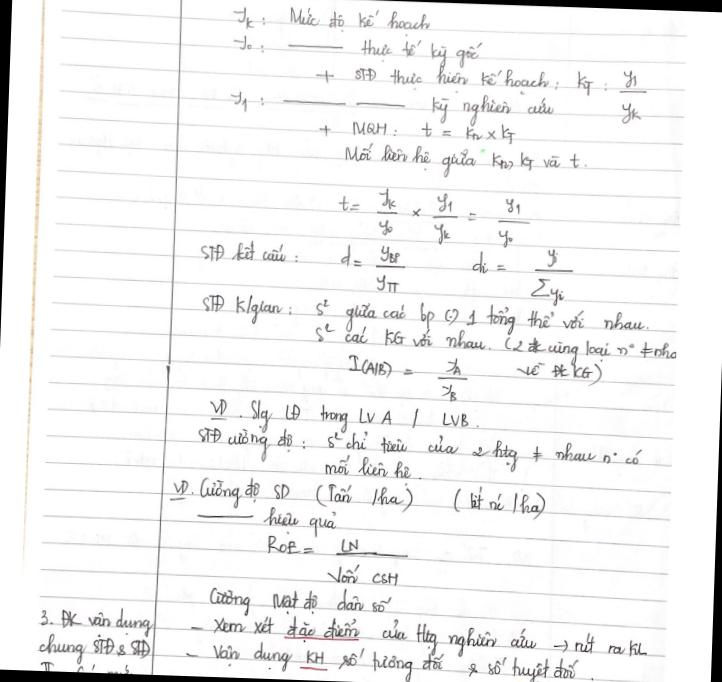 y_k : Mức độ kế hoạch
y_0 : ——— thực tế kỳ gốc
+ STĐ thực hiện kế hoạch : K_T : y_1 / y_k
y_1 : ——— ——— kỳ nghiên cứu
+ MQH : t = K_n × K_T
Mối liên hệ giữa K_n, K_T và t.
t = y_k / y_0 × y_1 / y_k = y_1 / y_0
STĐ kết cấu : d = y_BP / y_TT d_i = y_i / Σy_i
STĐ K/gian : s² giữa các bp (:) 1 tổng thể với nhau.
s² các KG với nhau. (2 cùng loại n° ≠ nha
I(A/B) = y_A / y_B về ĐK KG)
VD. Slg LĐ trong LV A / LVB.
STĐ cường độ : s² chỉ tiêu của 2 htg ≠ nhau n° có
mối liên hệ.
VD. Cường độ SD (Tấn / ha) ( / ha)
——— hiệu quả
ROE = LN / Vốn CSH
Cường mật độ dân số
3. ĐK vận dụng – Xem xét đặc điểm của Htg nghiên cứu → rút ra KL
chung STĐ & STĐ – Vận dụng KH số tương đối & số tuyệt đối.